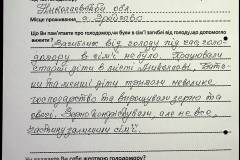 Николаевская обл.
Місце проживання с. Зрайково
Що Ви пам'ятаєте про голодомор, чи були в сім'ї загиблі від голоду, що допомогло
вижити?
Загиблих від голоду під час голо-
домору в сім'ї не було. Працювали
старші діти в місті Миколаєві. Бать-
ки та менші діти тримали невелике
господарство та вирощували зерно та
овочі. Зерно конфісковували, але не все,
частину залишали сім'ї.
Чи вважаєте Ви себе жертвою голодомору?